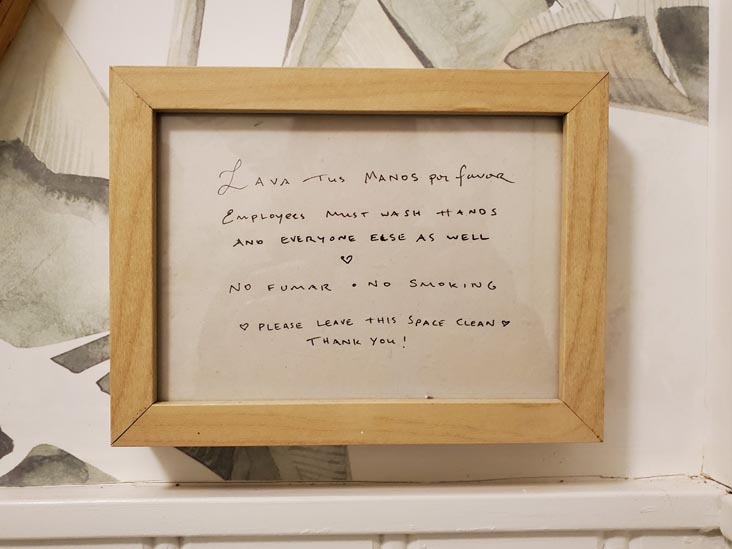 Lava tus MANOS por favor
EMPLOYEES MUST WASH HANDS
AND EVERYONE ELSE AS WELL
♡
NO FUMAR • NO SMOKING
♡ PLEASE LEAVE THIS SPACE CLEAN ♡
THANK YOU!